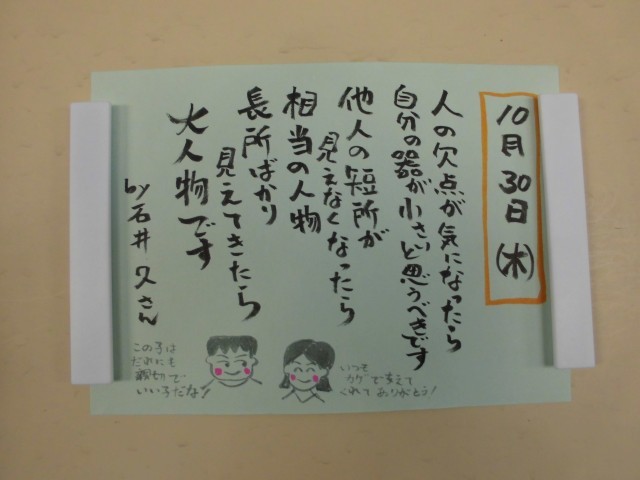 10月30日(木)
人の欠点が気になったら
自分の器が小さいと思うべきです
他人の短所が
見えなくなったら
相当の人物
長所ばかり
見えてきたら
大人物です
by 石井久さん
いつも
カゲで支えて
くれてありがとう!
この子は
だれにも
親切で
いい子だな!